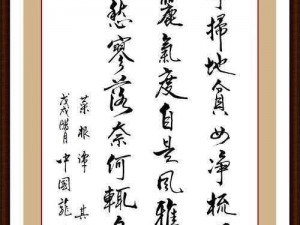 掃地貧女净梳
麗氣度自是風雅
愁寥落奈何輒自
菜根譚 其
戊戌腊月 中国龍